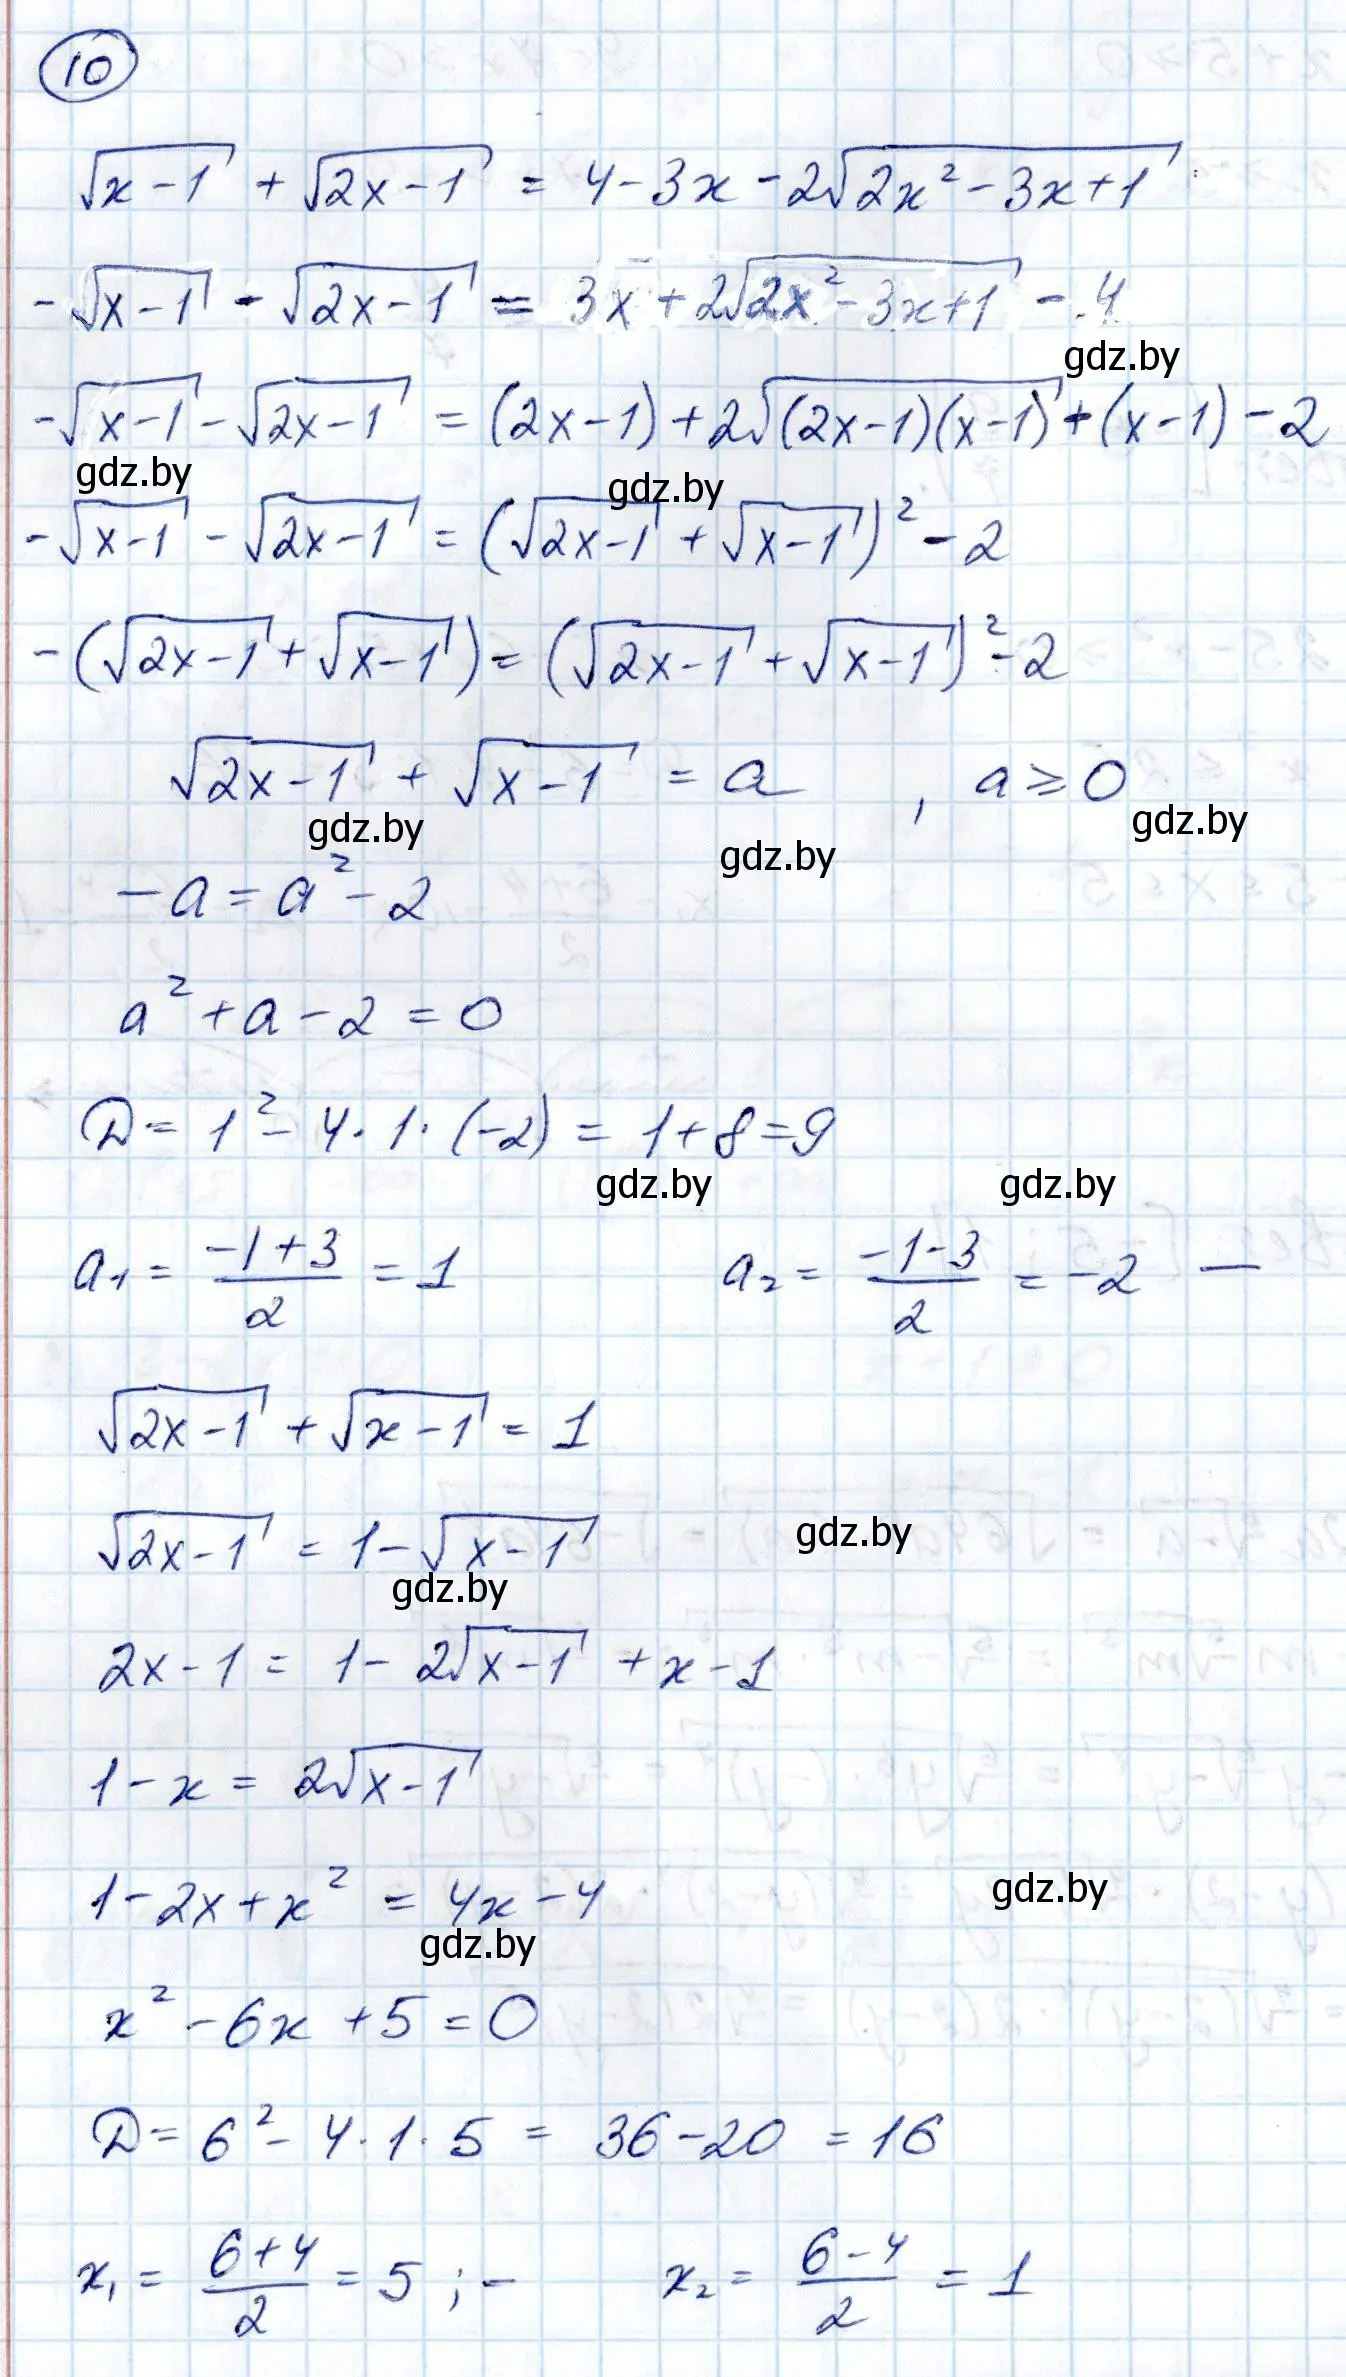 10
√(x-1) + √(2x-1) = 4-3x-2√(2x²-3x+1)
-√(x-1) - √(2x-1) = 3x+2√(2x²-3x+1) - 4
gdz.by
-√(x-1) - √(2x-1) = (2x-1)+2√((2x-1)(x-1))+(x-1)-2
gdz.by gdz.by
-√(x-1) - √(2x-1) = (√(2x-1) + √(x-1))² - 2
-(√(2x-1) + √(x-1)) = (√(2x-1) + √(x-1))² - 2
√(2x-1) + √(x-1) = a , a ≥ 0
gdz.by gdz.by gdz.by
-a = a² - 2
a² + a - 2 = 0
D = 1² - 4·1·(-2) = 1+8=9
gdz.by gdz.by
a₁ = (-1+3)/2 = 1 a₂ = (-1-3)/2 = -2 —
√(2x-1) + √(x-1) = 1
√(2x-1) = 1-√(x-1) gdz.by
gdz.by
2x-1 = 1-2√(x-1) + x-1
1-x = 2√(x-1)
1-2x+x² = 4x-4 gdz.by
gdz.by
x² - 6x + 5 = 0
D = 6² - 4·1·5 = 36-20 = 16
x₁ = (6+4)/2 = 5 ; - x₂ = (6-4)/2 = 1